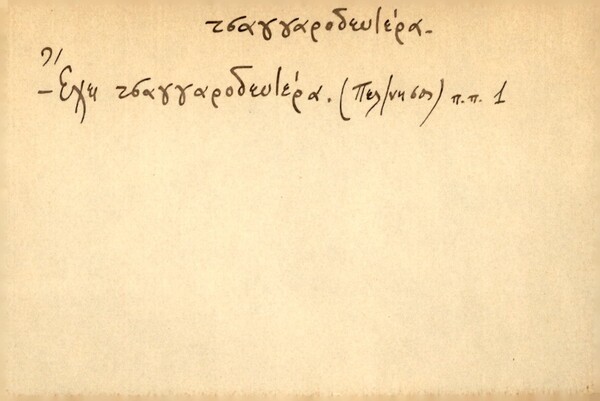 τσαγγαροδευτέρα.
- Ἔχει τσαγγαροδευτέρα. (Πελ/νησος) π.π. 1